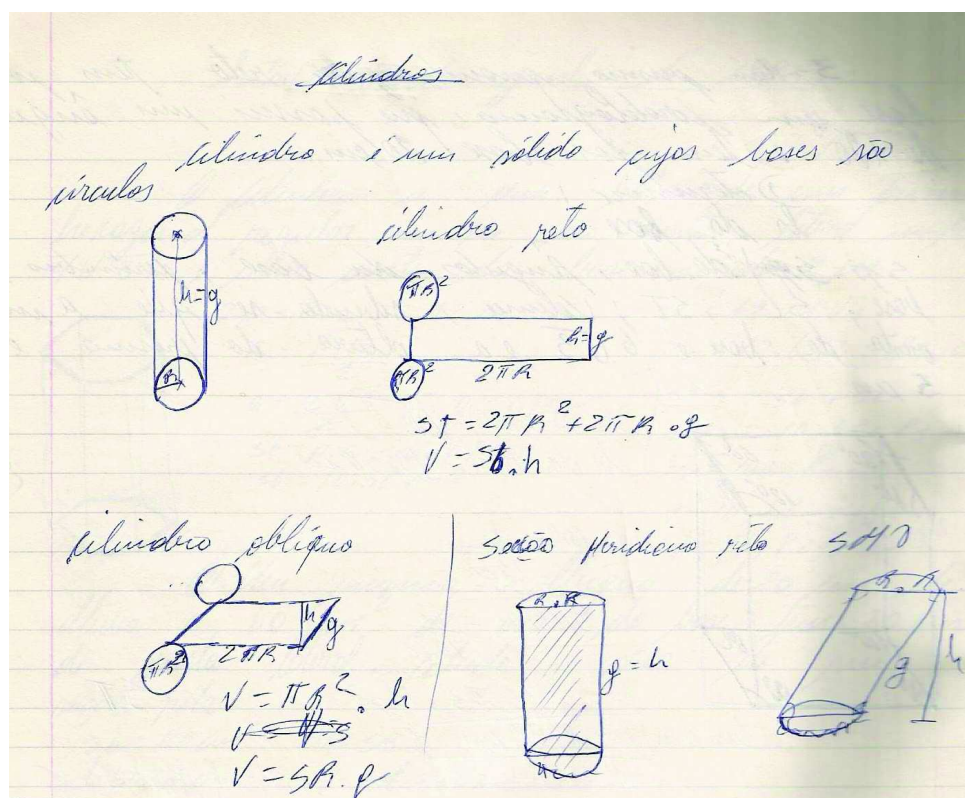 Cilindros
Cilindro é um sólido cujas bases são
círculos
h=g
R
cilindro reto
πR²
h=g
πR²
2πR
St = 2πR² + 2πR . g
V = Sb . h
Cilindro oblíquo
h g
πR²
2πR
V = πR² . h
V = SR . g
Secção Meridiana reto SMO
R . R
g = h
R . R
g
h